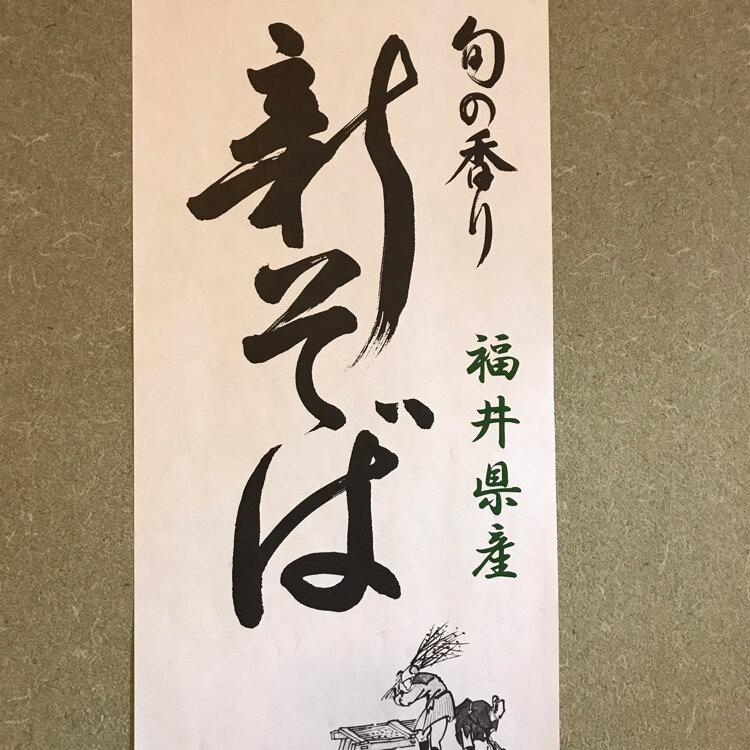 旬の香り
福井県産
新そば